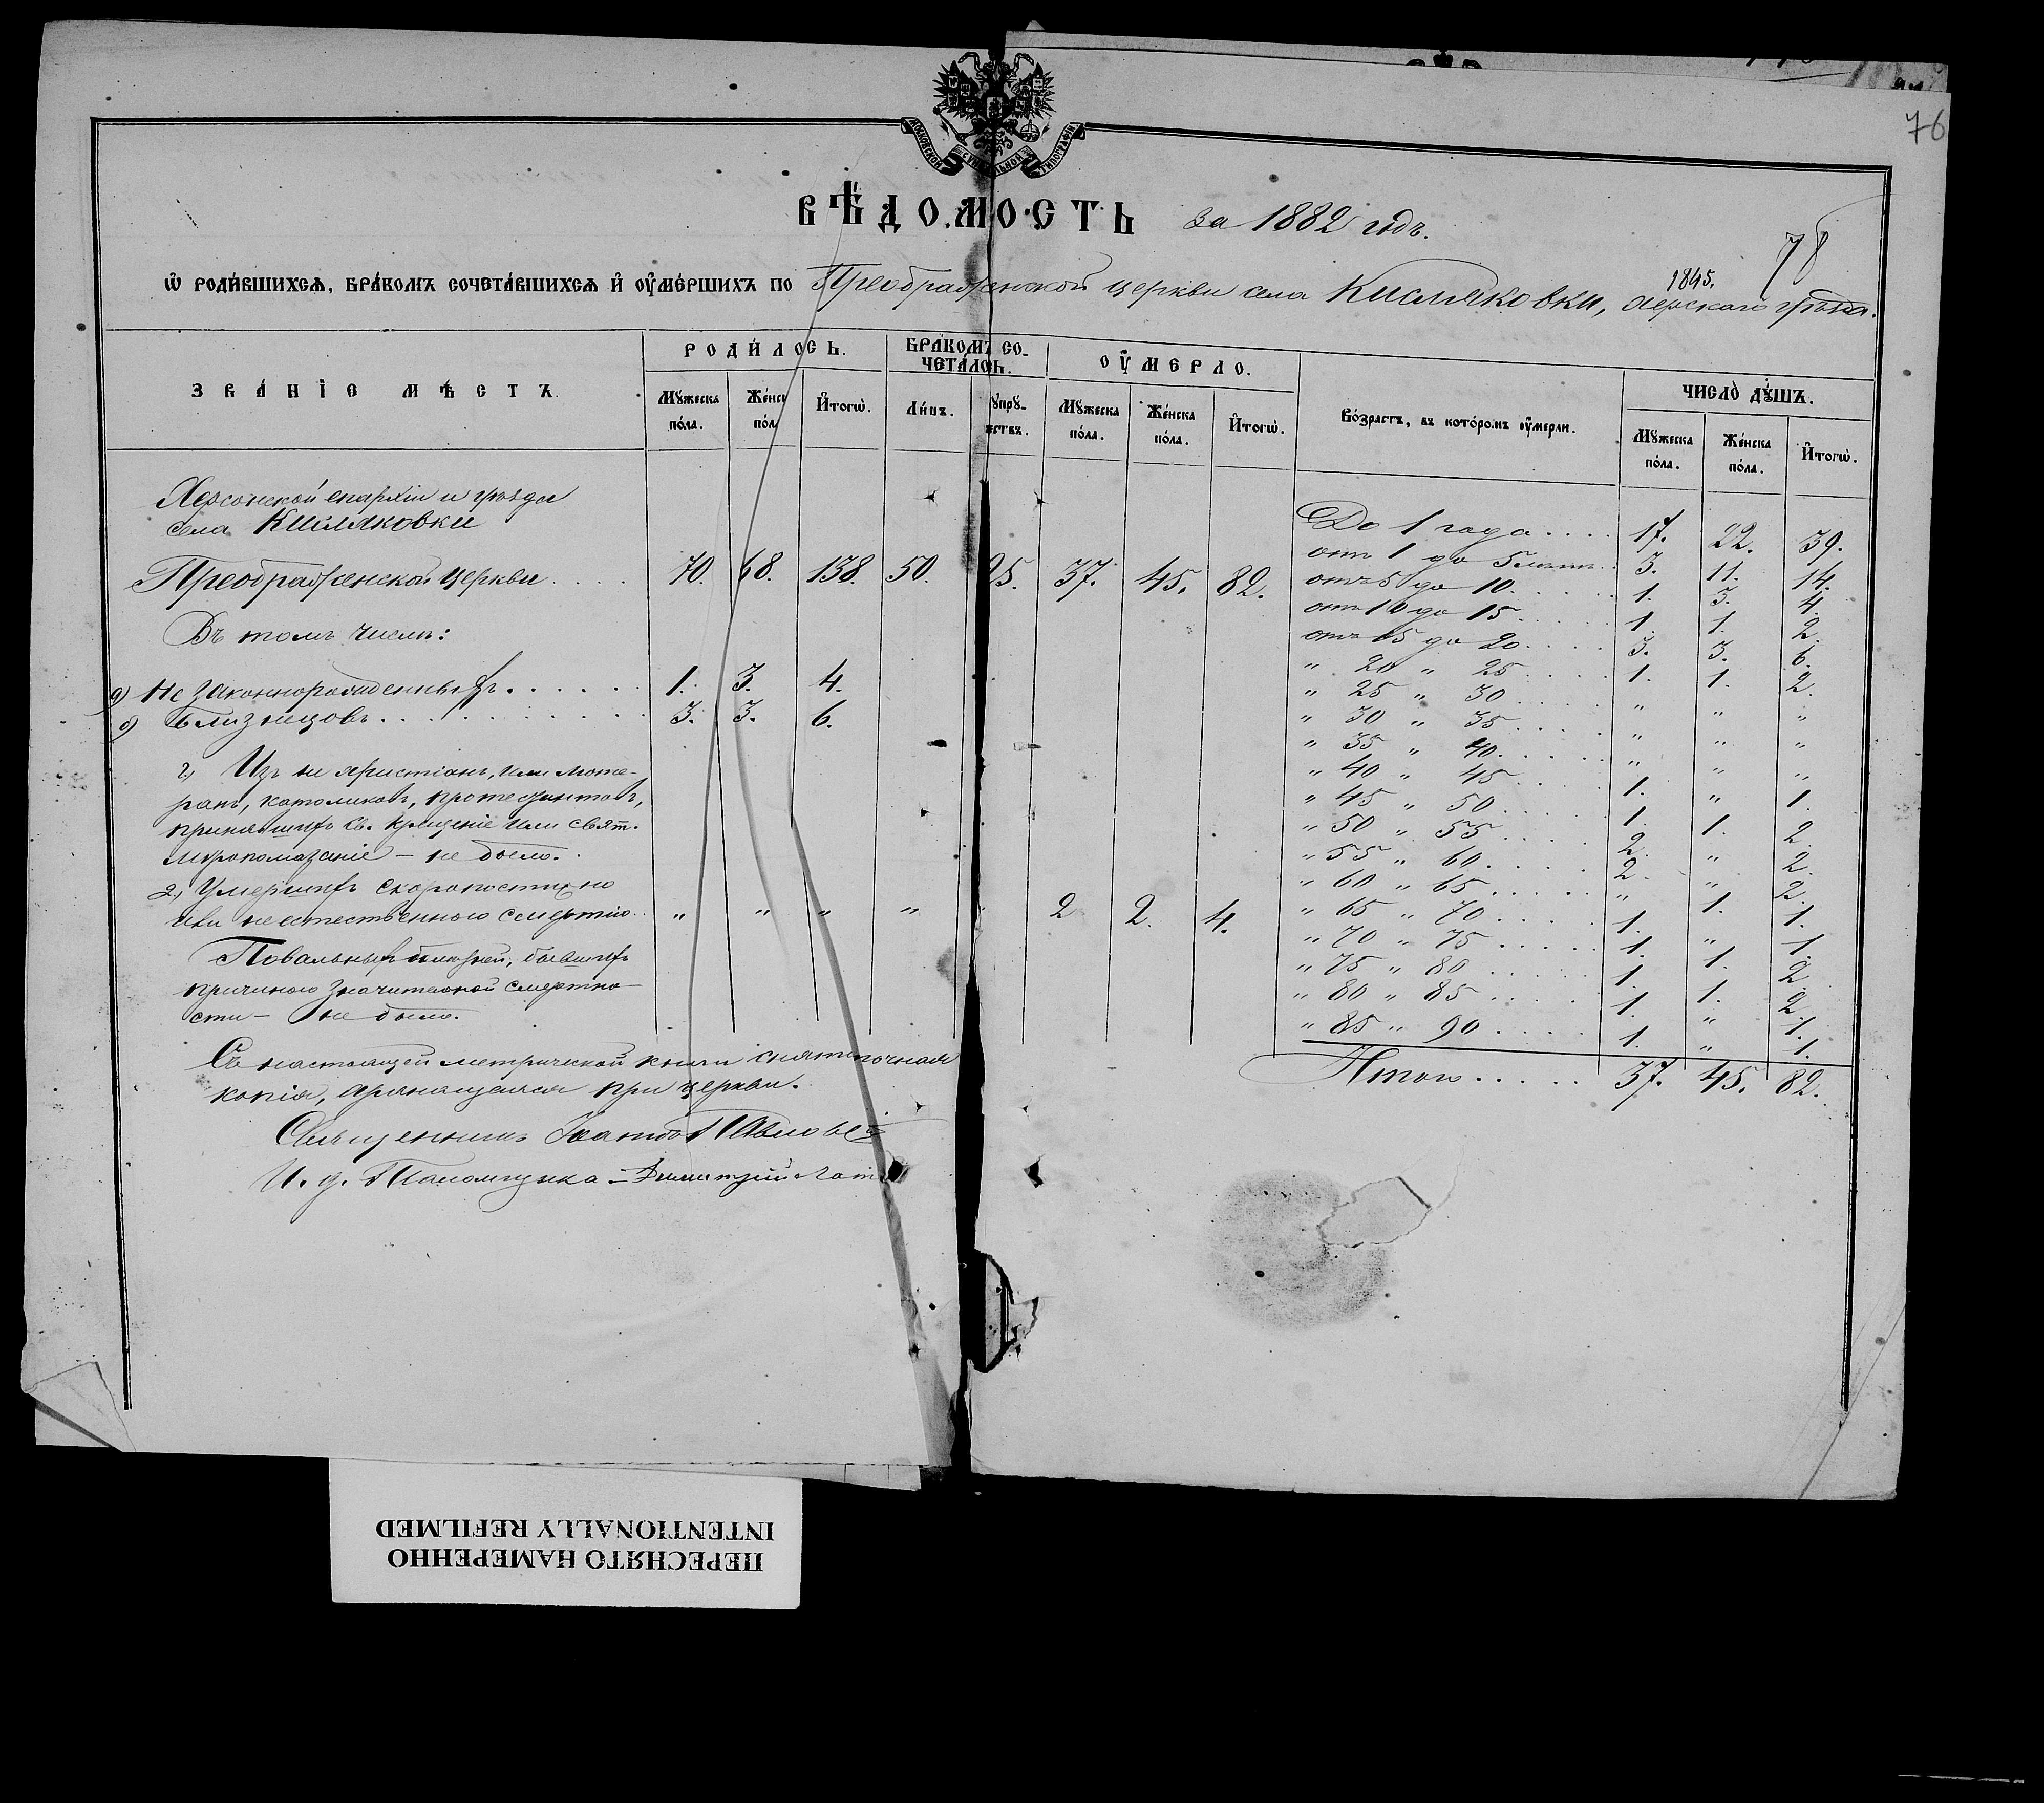 76
МОСКОВСКОЙ СУНОДАЛЬНОЙ ТИПОГРАФІИ
ВѢДОМОСТЬ за 1882 годъ.
78
1845.
Ѡ РОДИВШИХСѦ, БРАКОМЪ СОЧЕТАВШИХСѦ И ОУМЕРШИХЪ ПО Преображенской церкви села Кисляковки, уѣзда.
ЗВАНІЕ МѢСТЪ.
РОДИЛОСЬ.
БРАКОМЪ СО-
ЧЕТАЛОСЬ.
ОУМЕРЛО.
Возрастъ, въ которомъ оумерли.
ЧИСЛО ДУШЪ.
Мужеска пола. Женска пола. Итогѡ. Лицъ. Мужеска пола. Женска пола. Итогѡ. Мужеска пола. Женска пола. Итогѡ.
Херсонской епархіи и уѣзда
села Кисляковки
Преображенской церкви.... 70. 68. 138. 50. 25. 37. 45. 82.
Въ томъ числѣ:
Незаконнорожденныхъ...... 1. 3. 4.
Близнецовъ.......... 3. 3. 6.
1.) Изъ не христіанъ, или люте-
ранъ, католиковъ, протестантовъ,
принявшихъ Св. крещеніе или свят.
мѵропомазаніе – не было.
2.) Умершихъ скоропостижно
или неестественною смертію.. „ „ „ „ 2 2. 4.
Повальныхъ болѣзней, бывшихъ
причиною значительной смертно-
сти – не было.
Съ настоящей метрической книги снята точная
копія, хранящаяся при церкви.
Священникъ Павловъ
И. д. Псаломщика – Димитрій
До 1 года.... 17. 22. 39.
отъ 1 до 5 лѣтъ.. 3. 11. 14.
отъ 5 до 10..... 1. 3. 4.
отъ 10 до 15..... 1. 1. 2.
отъ 15 до 20.... 3. 3. 6.
„ 20 „ 25..... 1. 1. 2.
„ 25 „ 30..... „ „ „
„ 30 „ 35..... „ „ „
„ 35 „ 40..... „ „ „
„ 40 „ 45..... 1. „ 1.
„ 45 „ 50..... 1. 1. 2.
„ 50 „ 55..... 2. „ 2.
„ 55 „ 60..... 2. „ 2.
„ 60 „ 65..... „ 1. 1.
„ 65 „ 70..... 1. „ 1.
„ 70 „ 75..... 1. 1. 2.
„ 75 „ 80..... 1. 1. 2.
„ 80 „ 85..... 1. „ 1.
„ 85 „ 90..... 1. „ 1.
Итого..... 37. 45. 82.
ПЕРЕСНЯТО НАМЕРЕННО
INTENTIONALLY REFILMED